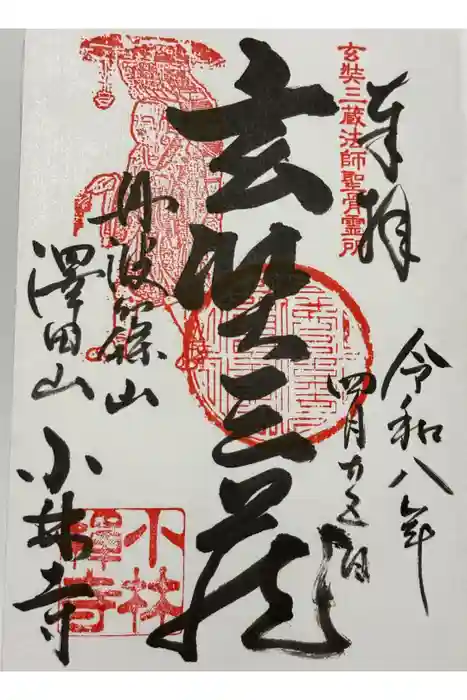 奉拝
玄奘三蔵法師聖骨霊所
令和八年
四月
玄奘三蔵
丹波篠山
澤田山
小林寺
小林
禪寺